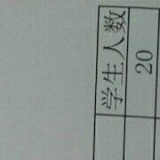 学生人数
20